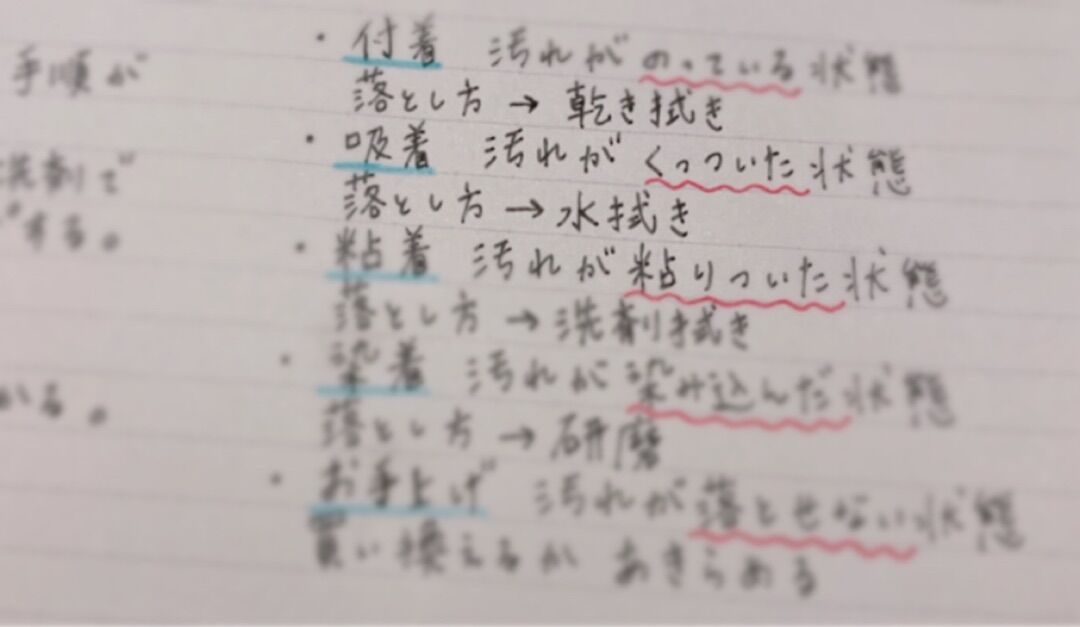 手順が
洗剤で
する。
かる。
・付着 汚れがのっている状態
落とし方→乾き拭き
・吸着 汚れがくっついた状態
落とし方→水拭き
・粘着 汚れが粘りついた状態
落とし方→洗剤拭き
・染着 汚れが染み込んだ状態
落とし方→研磨
・お手上げ 汚れが落とせない状態
買い換えるか あきらめる